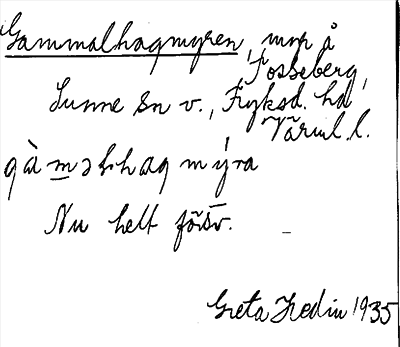 Gammalhagmyren, myr å
Tosseberg,
Sunne sn v., Fryksd. hd
Värml. l.
gàmalhagmýra
Nu helt försv.
Greta Hedin 1935